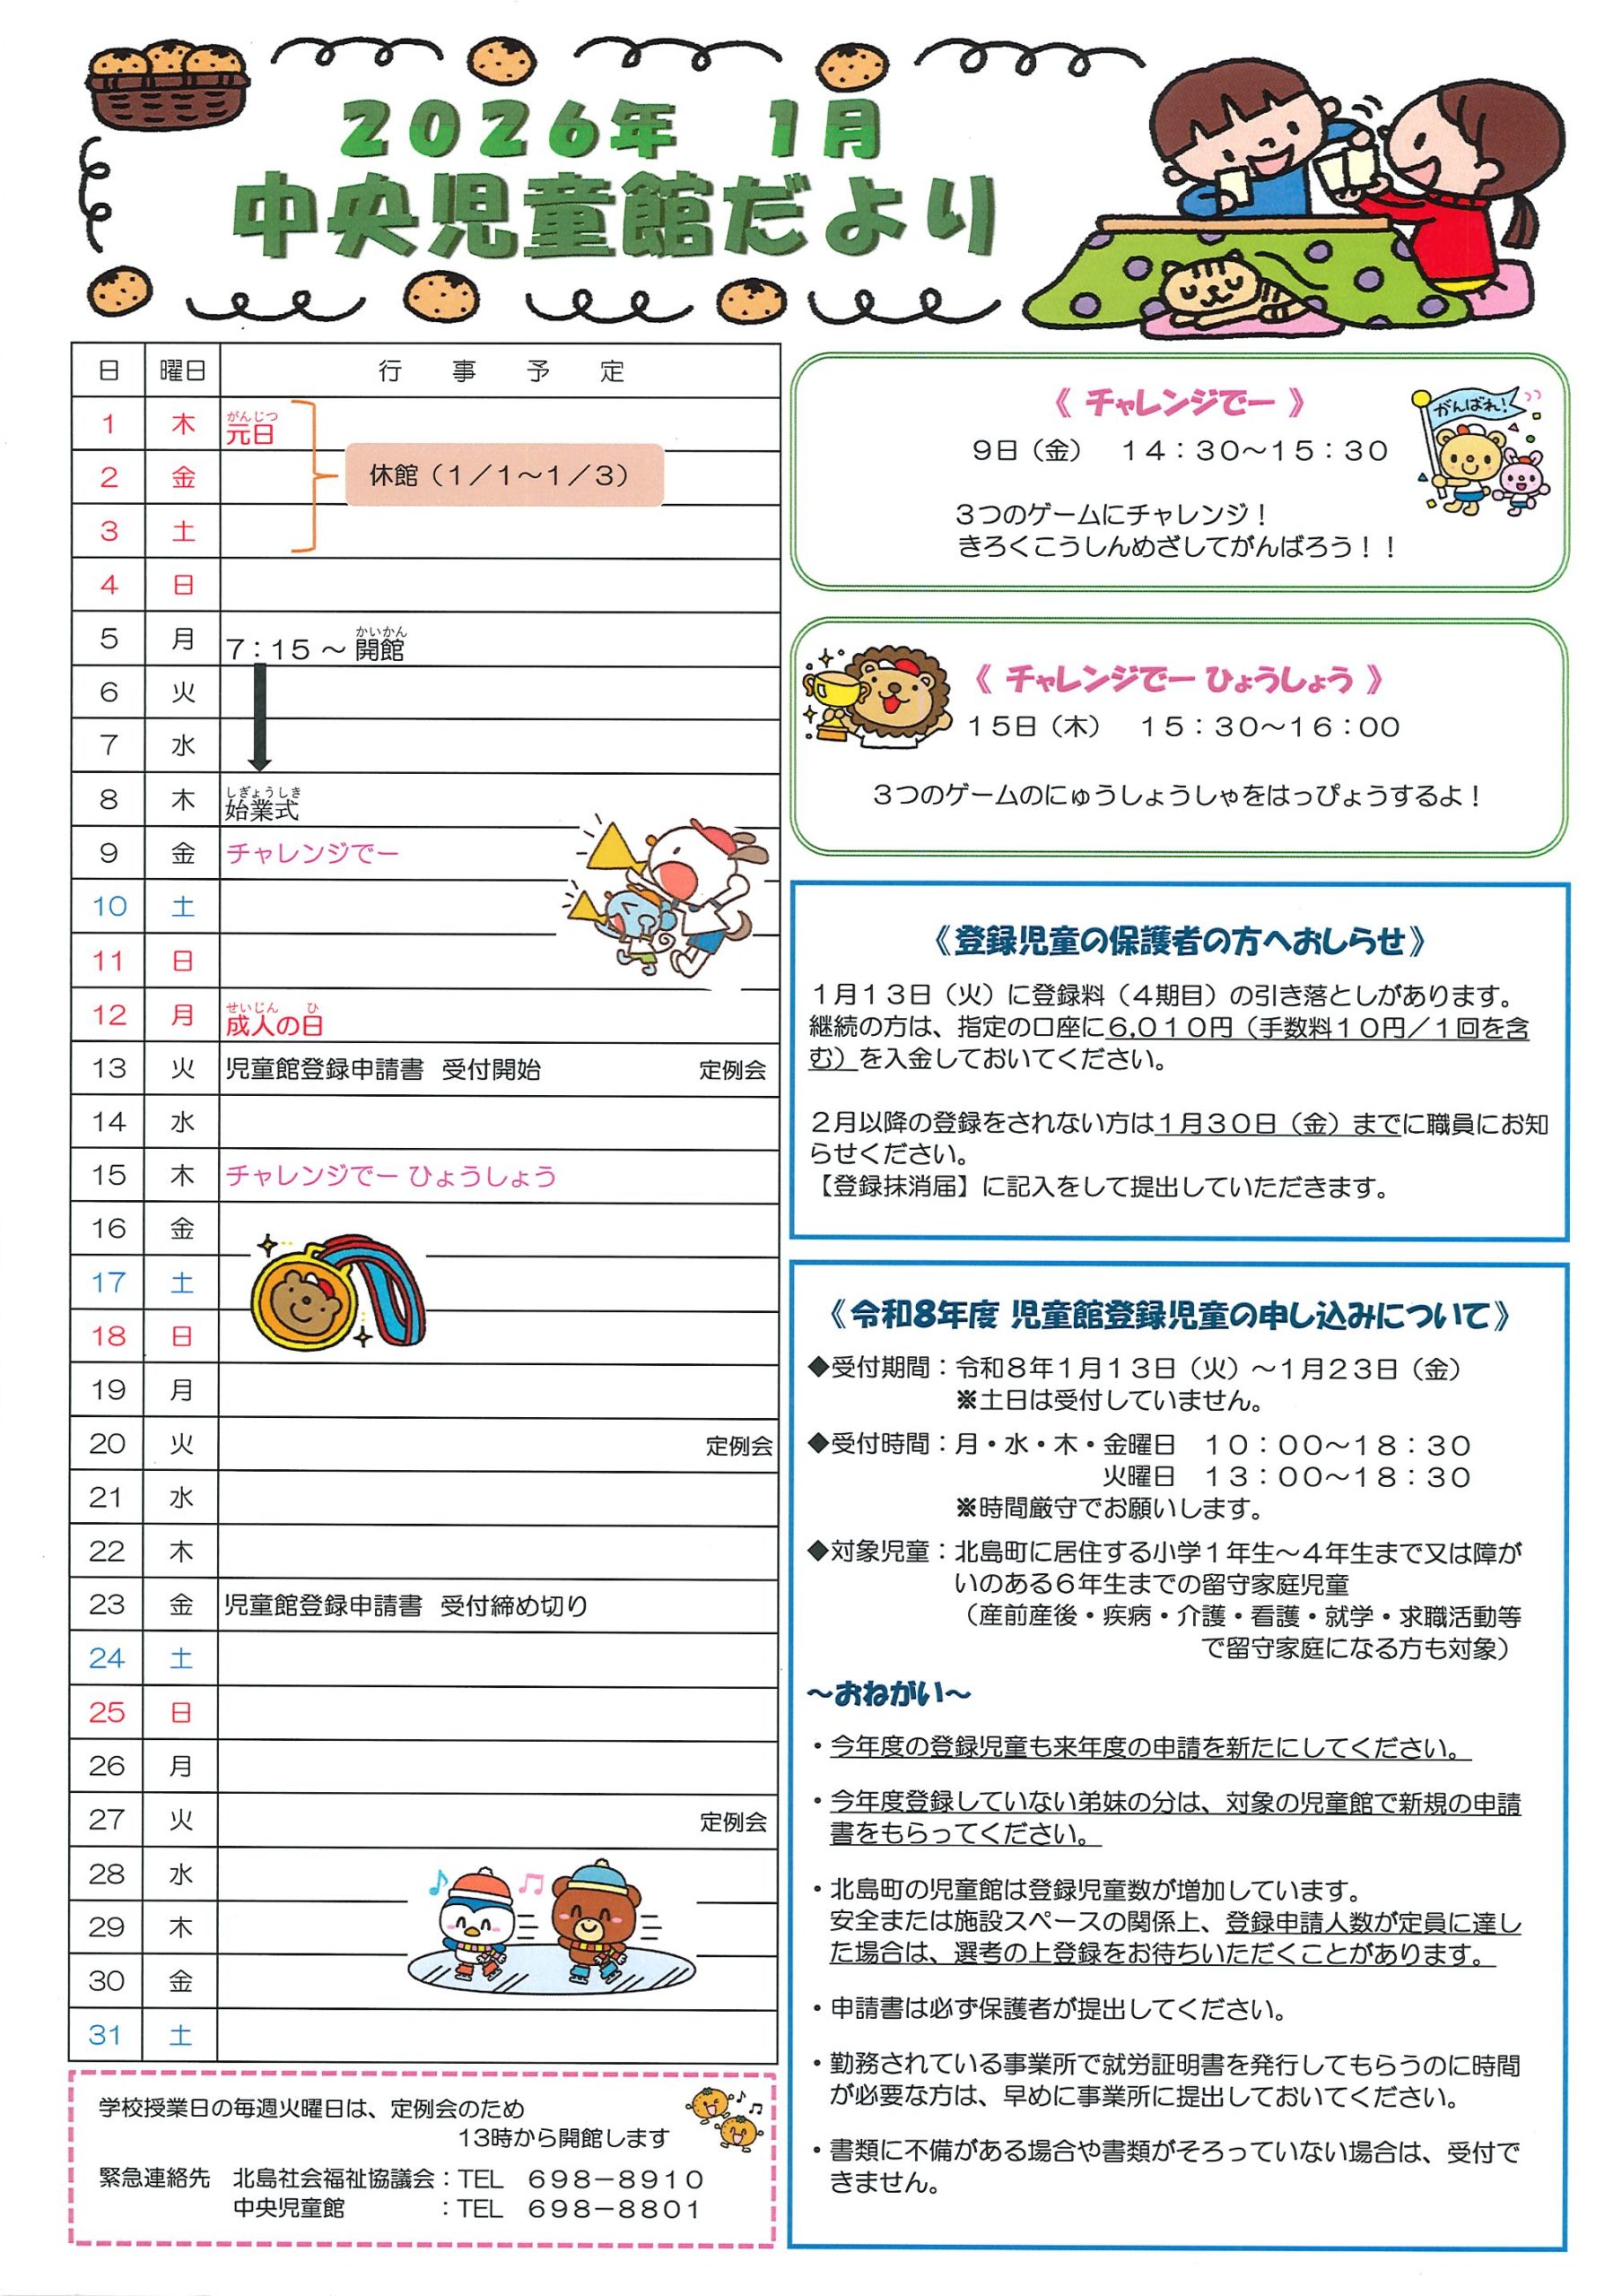 2026年 1月
中央児童館だより
日 曜日 行事予定
1 木 元日 がんじつ
休館（1／1～1／3）
2 金
3 土
4 日
5 月 7：15 ～ 開館 かいかん
6 火
7 水
8 木 始業式 しぎょうしき
9 金 チャレンジでー
10 土
11 日
12 月 成人の日 せいじん ひ
13 火 児童館登録申請書 受付開始 定例会
14 水
15 木 チャレンジでー ひょうしょう
16 金
17 土
18 日
19 月
20 火 定例会
21 水
22 木
23 金 児童館登録申請書 受付締め切り
24 土
25 日
26 月
27 火 定例会
28 水
29 木
30 金
31 土
学校授業日の毎週火曜日は、定例会のため
13時から開館します
緊急連絡先 北島社会福祉協議会：TEL 698－8910
中央児童館 ：TEL 698－8801
《 チャレンジでー 》
がんばれ！
9日（金） 14：30～15：30
3つのゲームにチャレンジ！
きろくこうしんめざしてがんばろう！！
《 チャレンジでー ひょうしょう 》
15日（木） 15：30～16：00
3つのゲームのにゅうしょうしゃをはっぴょうするよ！
《登録児童の保護者の方へおしらせ》
1月13日（火）に登録料（4期目）の引き落としがあります。
継続の方は、指定の口座に6,010円（手数料10円／1回を含
む）を入金しておいてください。
2月以降の登録をされない方は1月30日（金）までに職員にお知
らせください。
【登録抹消届】に記入をして提出していただきます。
《令和8年度 児童館登録児童の申し込みについて》
◆受付期間：令和8年1月13日（火）～1月23日（金）
※土日は受付していません。
◆受付時間：月・水・木・金曜日 10：00～18：30
火曜日 13：00～18：30
※時間厳守でお願いします。
◆対象児童：北島町に居住する小学1年生～4年生まで又は障が
いのある6年生までの留守家庭児童
（産前産後・疾病・介護・看護・就学・求職活動等
で留守家庭になる方も対象）
～おねがい～
・今年度の登録児童も来年度の申請を新たにしてください。
・今年度登録していない弟妹の分は、対象の児童館で新規の申請
書をもらってください。
・北島町の児童館は登録児童数が増加しています。
安全または施設スペースの関係上、登録申請人数が定員に達し
た場合は、選考の上登録をお待ちいただくことがあります。
・申請書は必ず保護者が提出してください。
・勤務されている事業所で就労証明書を発行してもらうのに時間
が必要な方は、早めに事業所に提出しておいてください。
・書類に不備がある場合や書類がそろっていない場合は、受付で
きません。